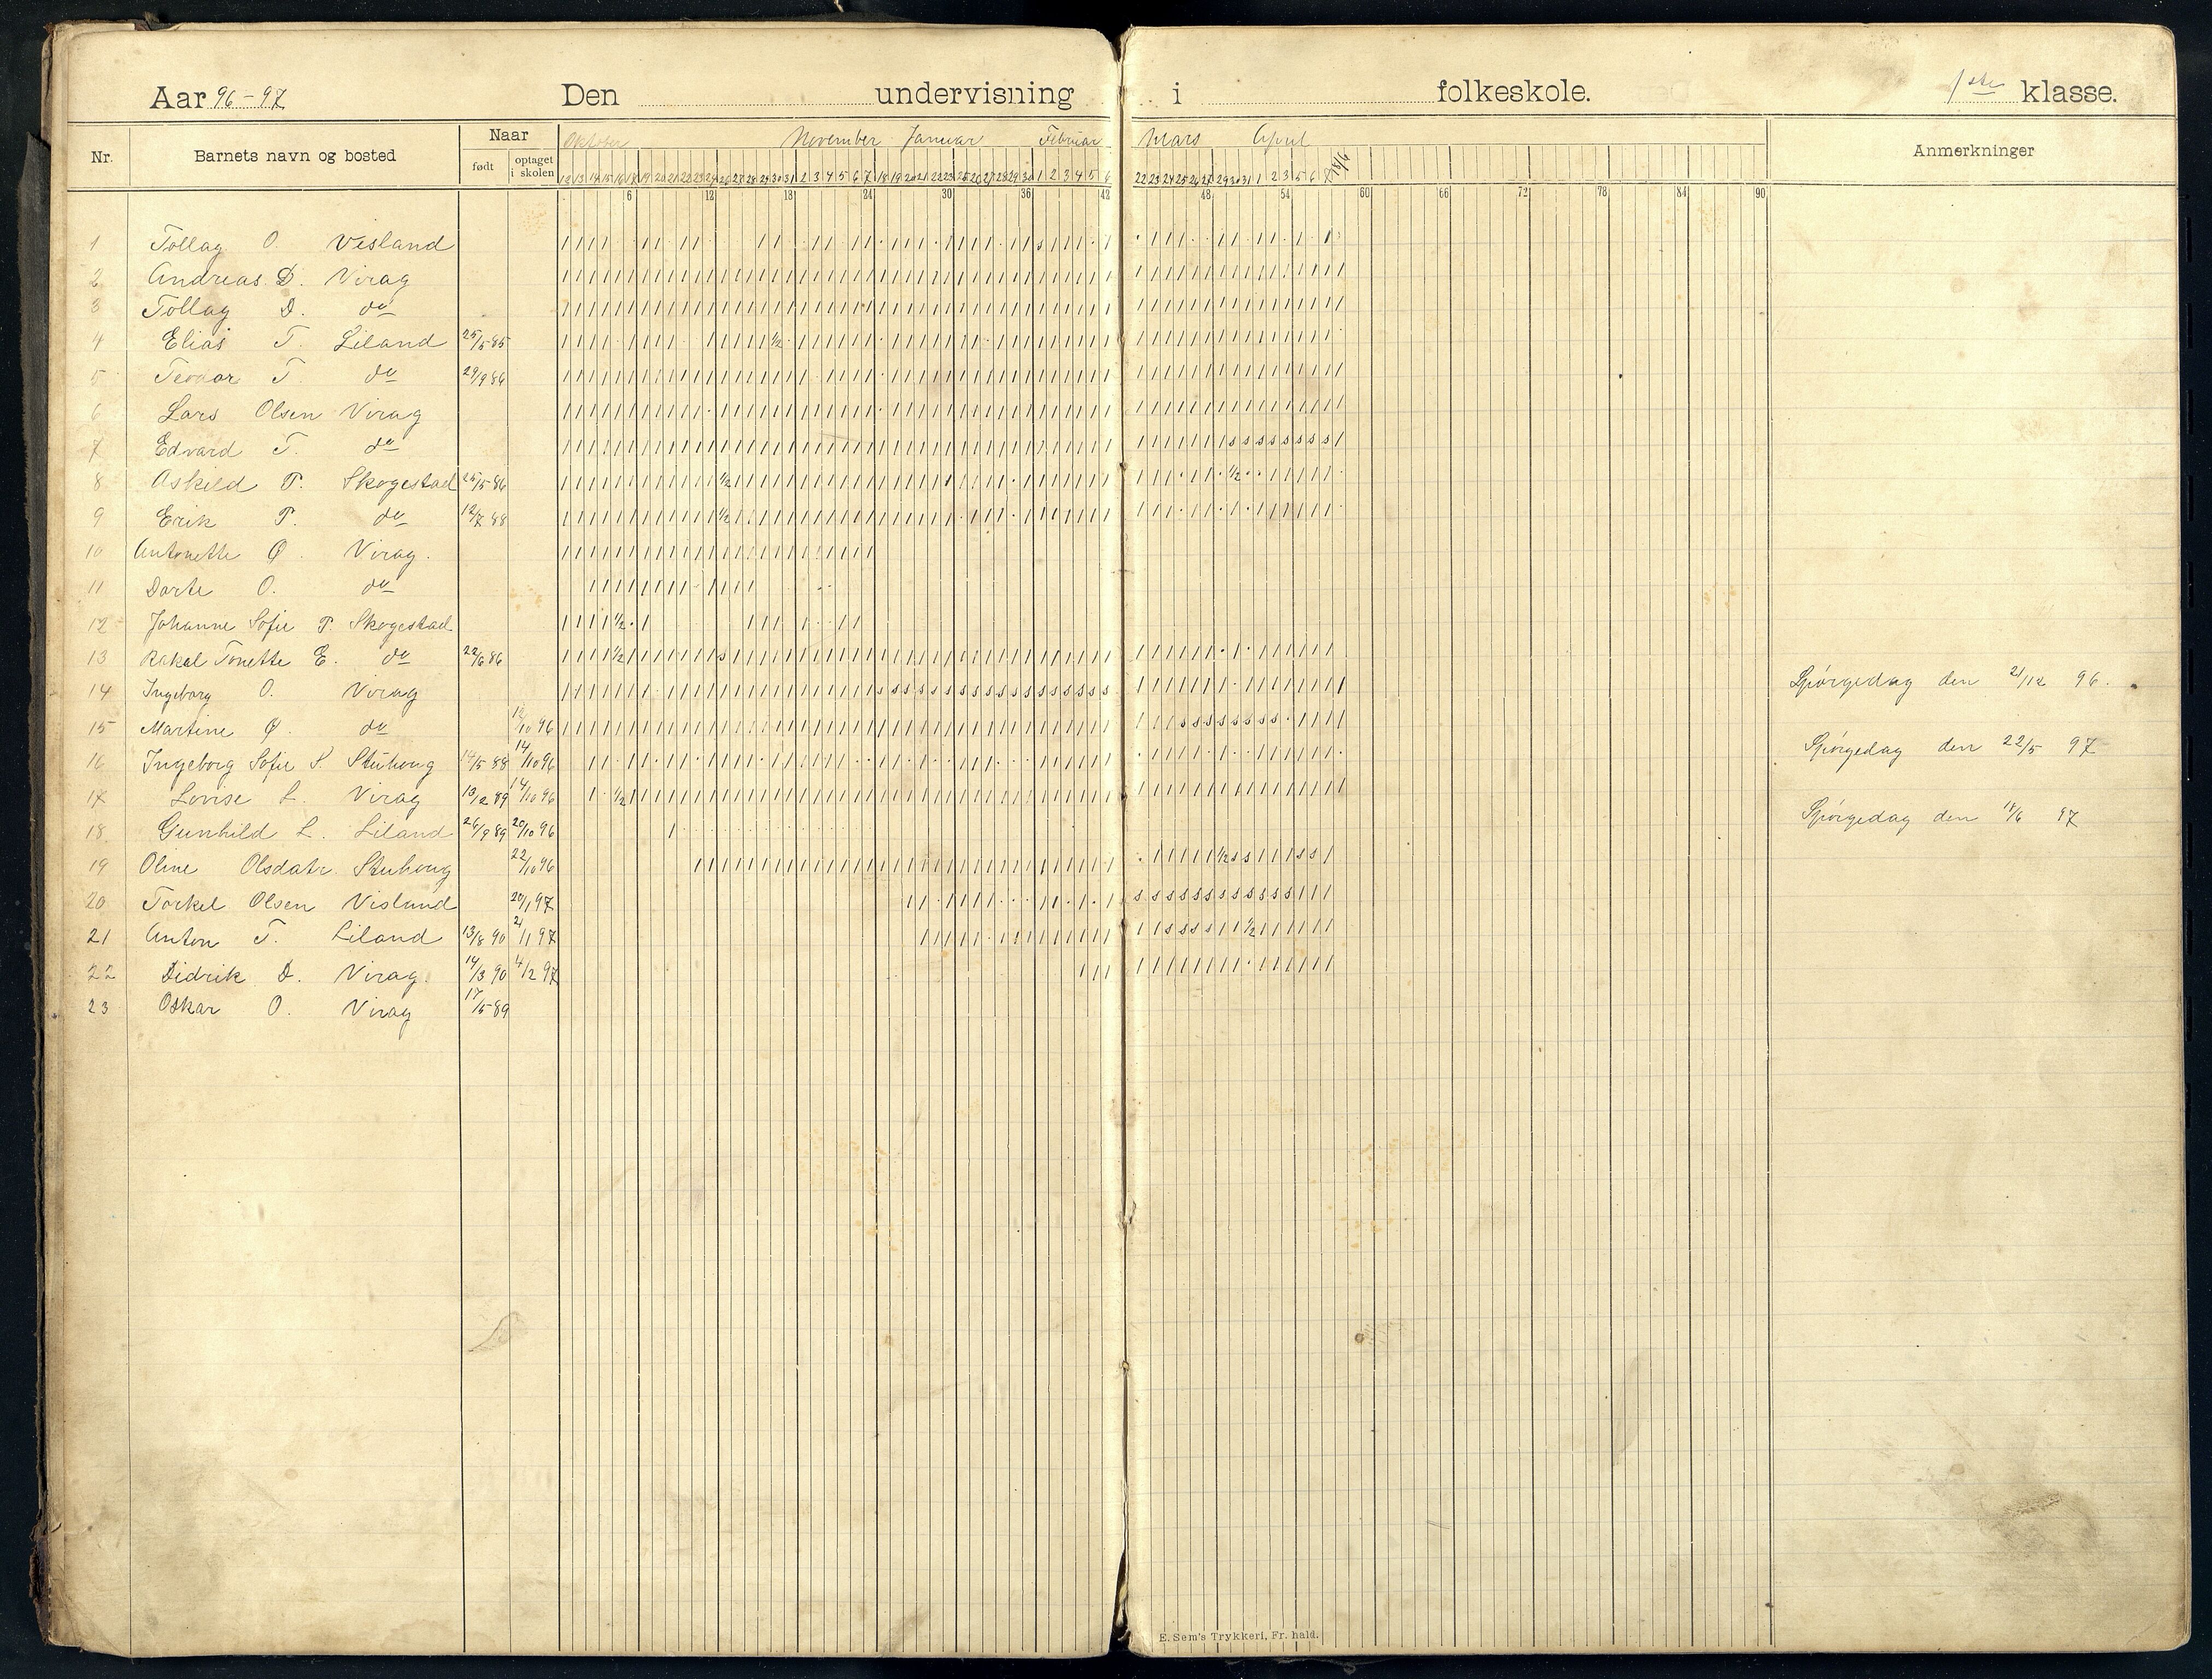 Aar 96-97 Den undervisning i folkeskole. 1ste klasse.
Nr. Barnets navn og bosted Naar født optaget i skolen Oktober November Januar Februar Mars April Anmerkninger
12 13 14 15 16 17 19 20 21 22 23 24 26 27 28 29 30 31 2 3 4 5 6 7 18 19 20 21 22 23 25 26 27 28 29 30 1 2 3 4 5 6 22 23 24 25 26 27 29 30 31 1 2 3 5 6 7
6 12 18 24 30 36 42 48 54 60 66 72 78 84 90
1 Tollag O. Visland
2 Andreas D. Virag
3 Tollag D. do
4 Elias T. Liland 25/5 85
5 Tevaar T. do 29/9 86
6 Lars Olsen Virag
7 Edvard T. do
8 Askild P. Skogestad 25/5 86
9 Erik P. do 12/7 88
10 Antonette O. Virag.
11 Dorte O. do
12 Johanne Sofie P. Skogestad
13 Rakel Tonette E. do 22/6 86
14 Ingeborg O. Virag
15 Martine O. do 12/10 96
16 Ingeborg Sofie S. Stuhoug 14/5 88 14/10 96
17 Lovise L. Virag 13/2 89 14/10 96
18 Gunhild L. Liland 26/9 89 20/10 96
19 Oline Olsdatr. Stuhoug 22/10 96
20 Torkel Olsen Visland 20/1 97
21 Anton T. Liland 13/8 90 21/1 97
22 Didrik D. Virag. 14/3 90 4/2 97
23 Oskar O. Virag 17/5 89
Spørgedag den 21/12 96.
Spørgedag den 22/5 97
Spørgedag den 97
E. Sem's Trykkeri, Fr. hald.